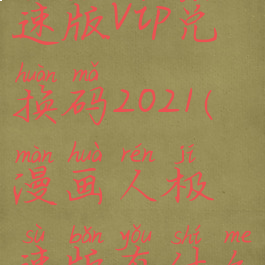 速版VIP兑
huàn mǎ
换码2021(
màn huà rén jí
漫画人极
sù bǎn yǒu shí me